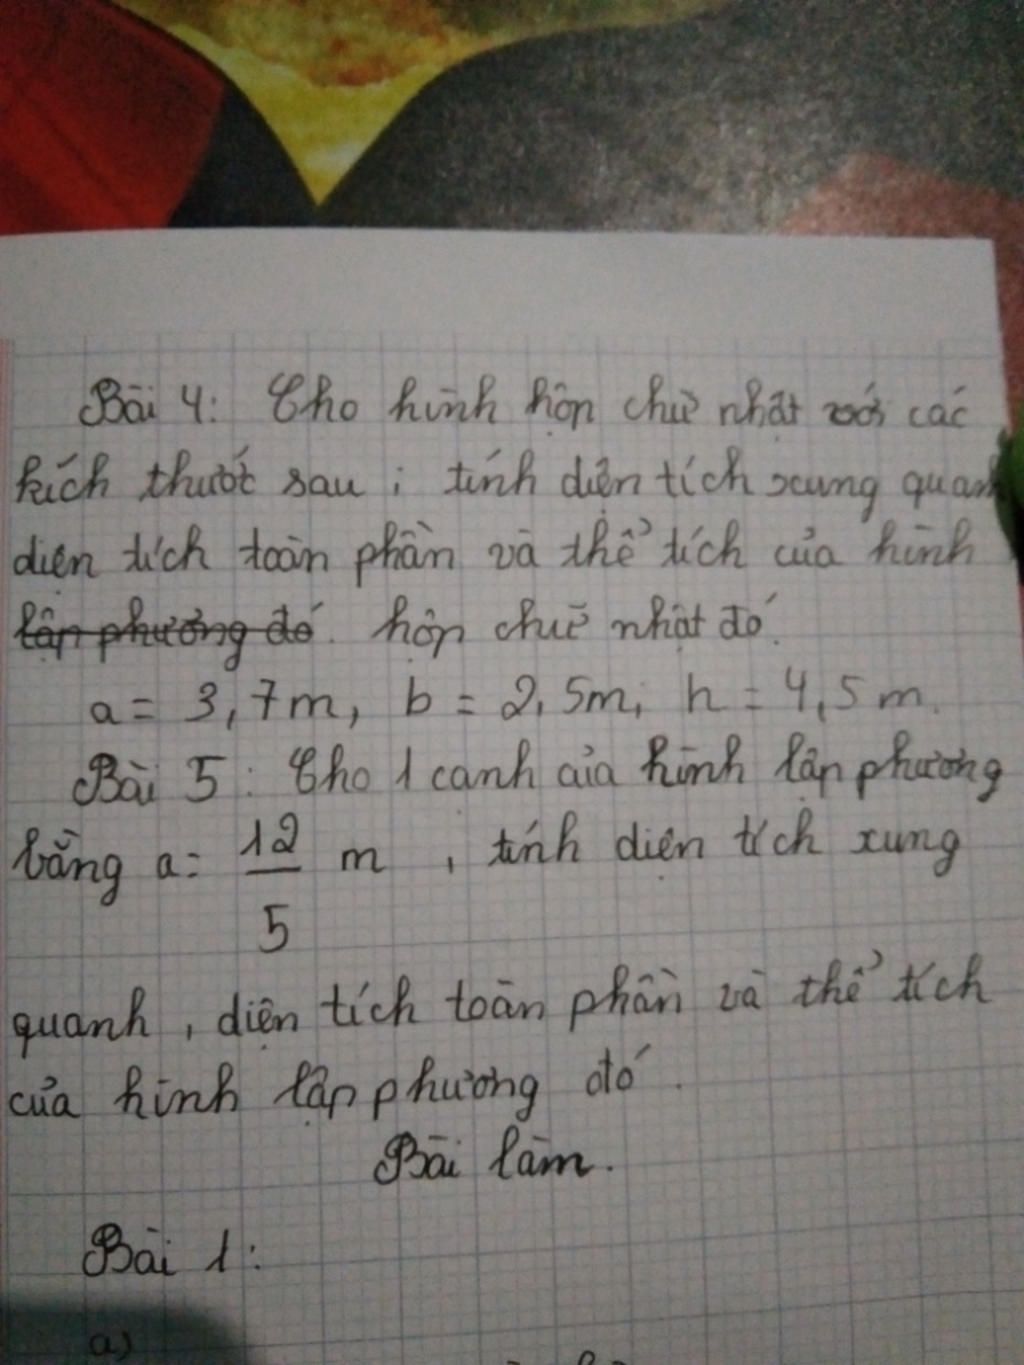 Bài 4: Cho hình hộp chữ nhật với các
kích thước sau; tính diện tích xung quanh
diện tích toàn phần và thể tích của hình
lập phương đó. hộp chữ nhật đó.
a = 3,7m, b = 2,5m, h = 4,5m.
Bài 5: Cho 1 cạnh của hình lập phương
bằng a= 12/5 m, tính diện tích xung
quanh, diện tích toàn phần và thể tích
của hình lập phương đó.
Bài làm.
Bài 1:
a)